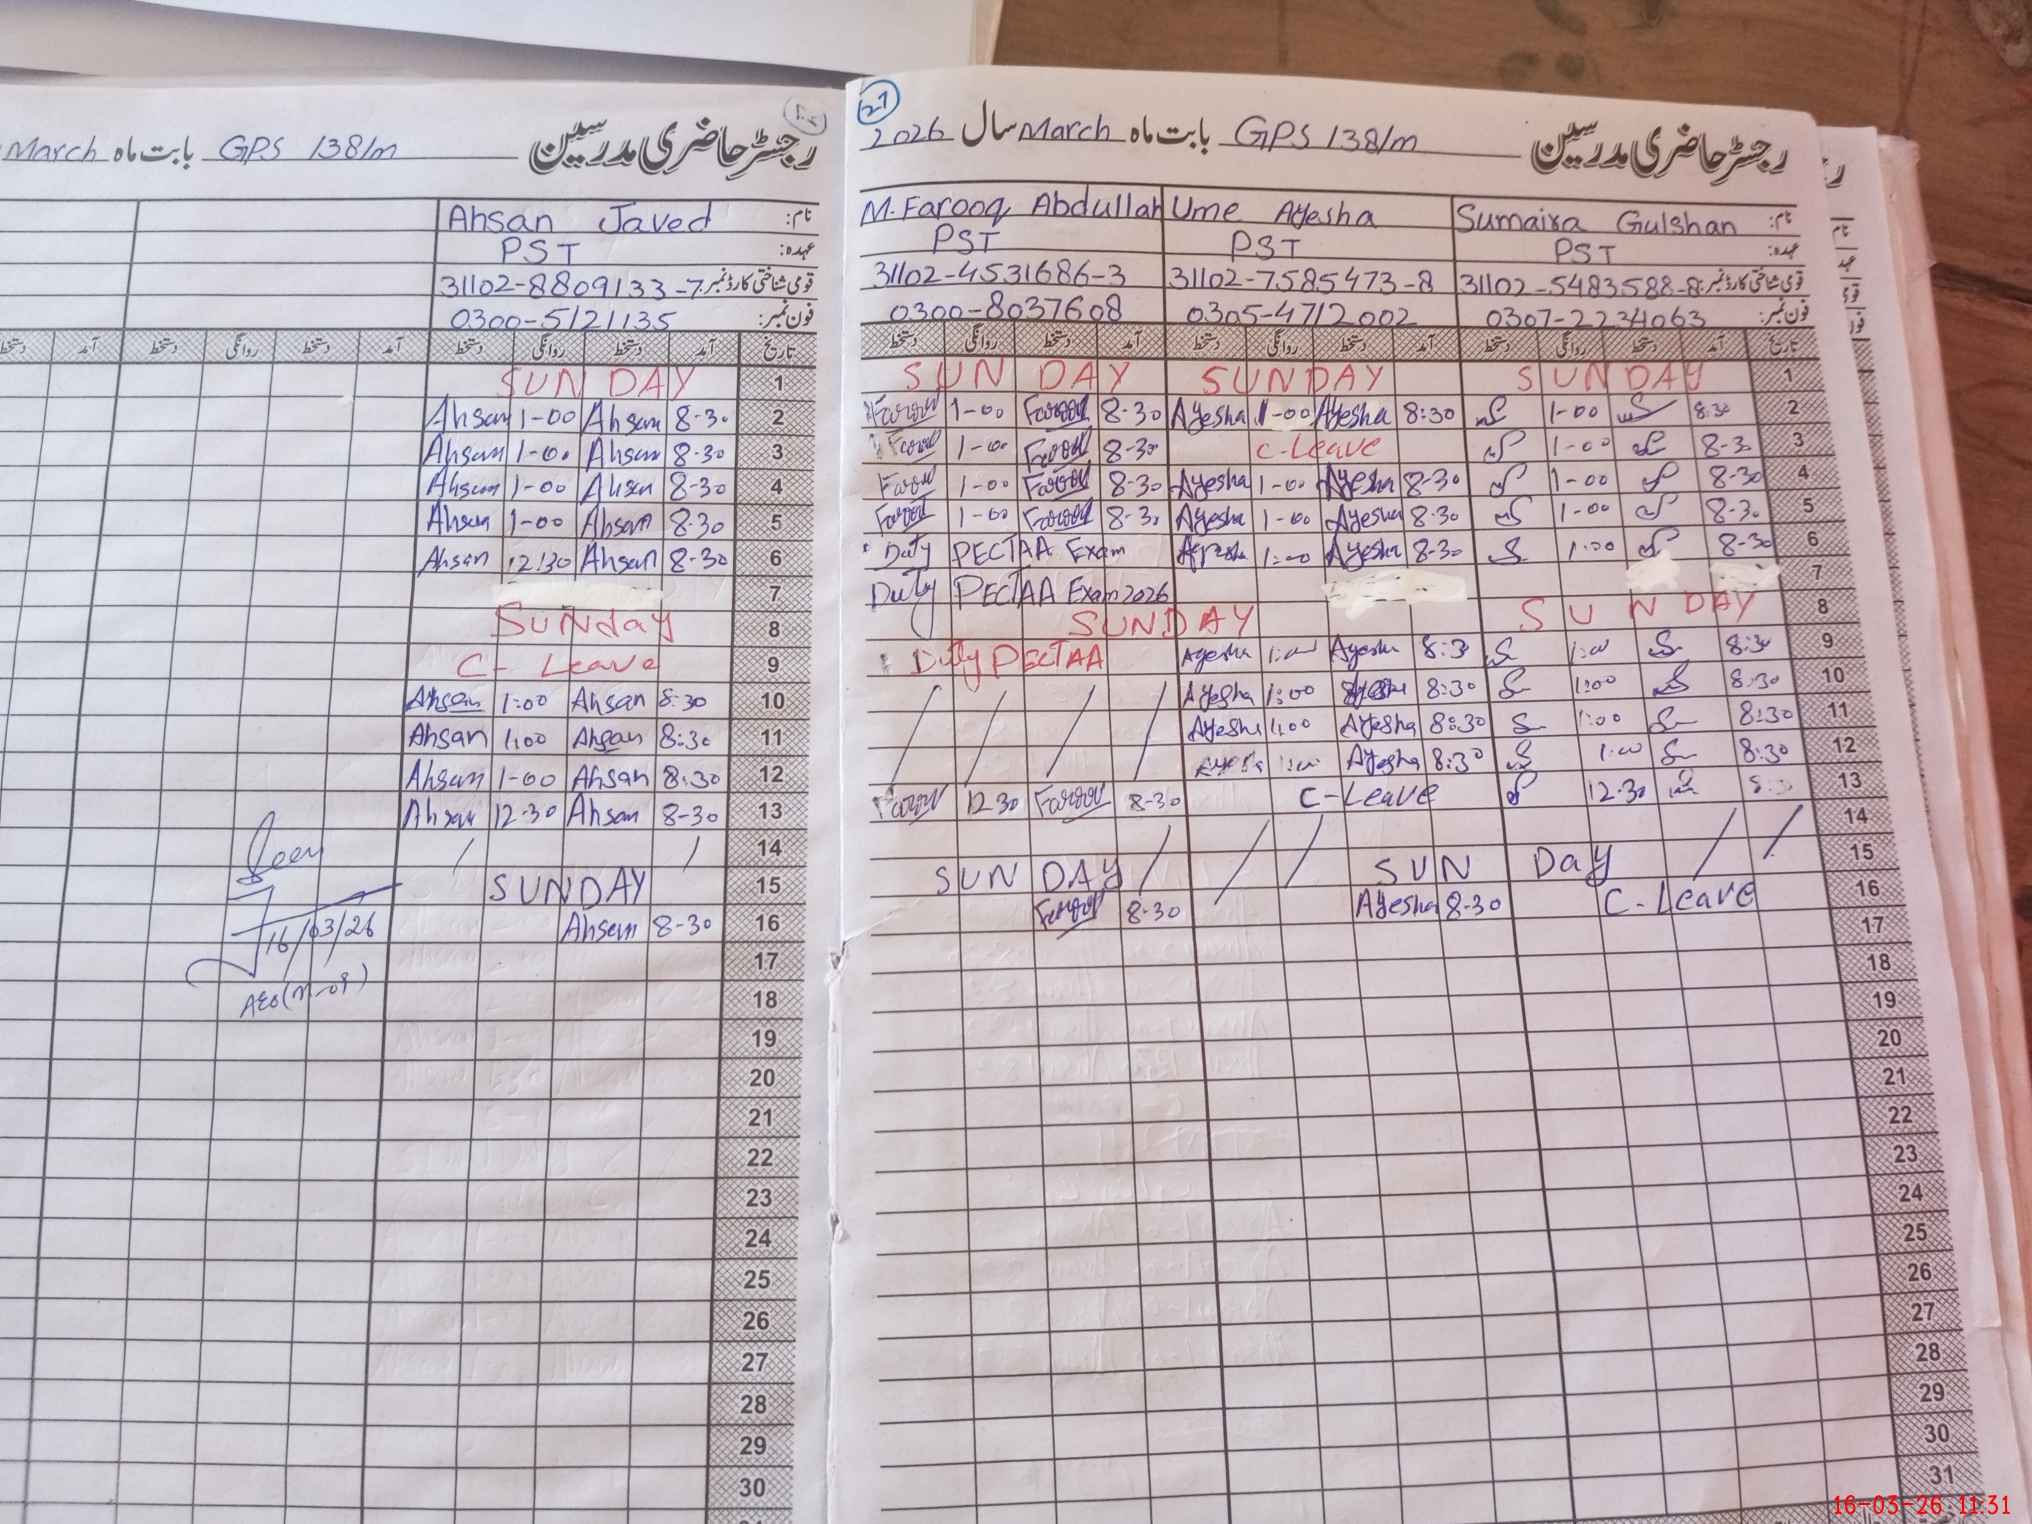 رجسٹر حاضری مدرسین GPS 138/m بابت ماہ March
Ahsan Javed نام:
PST عہدہ:
31102-8809133-7 قومی شناختی کارڈ نمبر:
0300-5121135 فون نمبر:
تاریخ آمد دستخط روانگی دستخط آمد دستخط روانگی دستخط آمد دستخط
SUNDAY 1
Ahsan 1-00 Ahsan 8-30 2
Ahsan 1-00 Ahsan 8-30 3
Ahsan 1-00 Ahsan 8-30 4
Ahsan 1-00 Ahsan 8-30 5
Ahsan 12:30 Ahsan 8-30 6
7
Sunday 8
C- Leave 9
Ahsan 1:00 Ahsan 8:30 10
Ahsan 1:00 Ahsan 8:30 11
Ahsan 1-00 Ahsan 8:30 12
Ahsan 12-30 Ahsan 8-30 13
14
SUNDAY 15
Ahsan 8-30 16
17
18
19
20
21
22
23
24
25
26
27
28
29
30
Seen
16/03/26
27
رجسٹر حاضری مدرسین GPS 138/m بابت ماہ March سال 2026
M.Farooq Abdullah Ume Ayesha Sumaira Gulshan نام:
PST PST PST عہدہ:
31102-4531686-3 31102-7585473-8 31102-5483588-8 قومی شناختی کارڈ نمبر:
0300-8037608 0305-4712002 0307-2234063 فون نمبر:
تاریخ آمد دستخط روانگی دستخط آمد دستخط روانگی دستخط آمد دستخط روانگی دستخط
SUNDAY SUNDAY SUNDAY 1
Farooq 1-00 Farooq 8-30 Ayesha 1-00 Ayesha 8:30 1-00 8:30 2
Farooq 1-00 Farooq 8-30 C-Leave 1-00 8-30 3
Farooq 1-00 Farooq 8-30 Ayesha 1-00 Ayesha 8-30 1-00 8-30 4
Farooq 1-00 Farooq 8-30 Ayesha 1-00 Ayesha 8-30 1-00 8-30 5
Duty PECTAA Exam Ayesha 1:00 Ayesha 8-30 1:00 8-30 6
Duty PECTAA Exam 2026 7
SUNDAY SUNDAY 8
Duty PECTAA Ayesha 1:00 Ayesha 8:30 1:00 8:30 9
Ayesha 1:00 Ayesha 8:30 1:00 8:30 10
Ayesha 1:00 Ayesha 8:30 1:00 8:30 11
Ayesha 1:00 Ayesha 8:30 1:00 8:30 12
Farooq 12-30 Farooq 8-30 C-Leave 12-30 8:30 13
14
SUNDAY SUN Day 15
Farooq 8-30 Ayesha 8-30 C-Leave 16
17
18
19
20
21
22
23
24
25
26
27
28
29
30
31
16-03-26 11:31